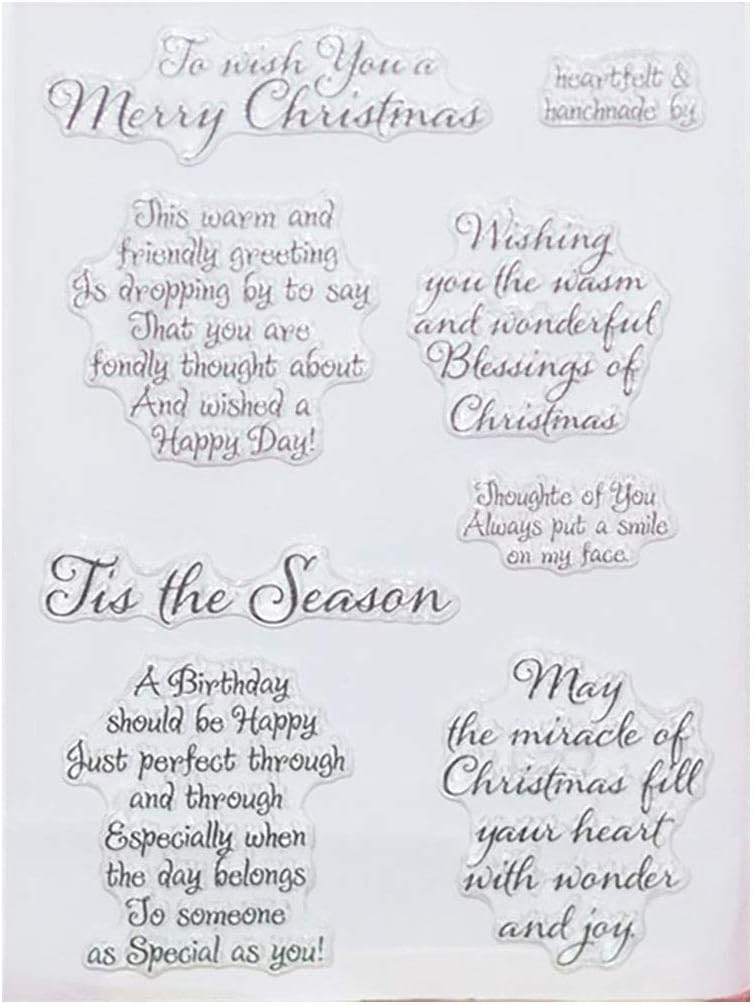 To wish You a
Merry Christmas
heartfelt &
hanchnade by
This warm and
friendly greeting
Is dropping by to say
That you are
fondly thought about
And wished a
Happy Day!
Wishing
you the wasm
and wonderful
Blessings of
Christmas
Thoughte of You
Always put a smile
on my face.
Tis the Season
A Birthday
should be Happy
Just perfect through
and through
Especially when
the day belongs
To someone
as Special as you!
May
the miracle of
Christmas fill
yaur heart
with wonder
and joy.